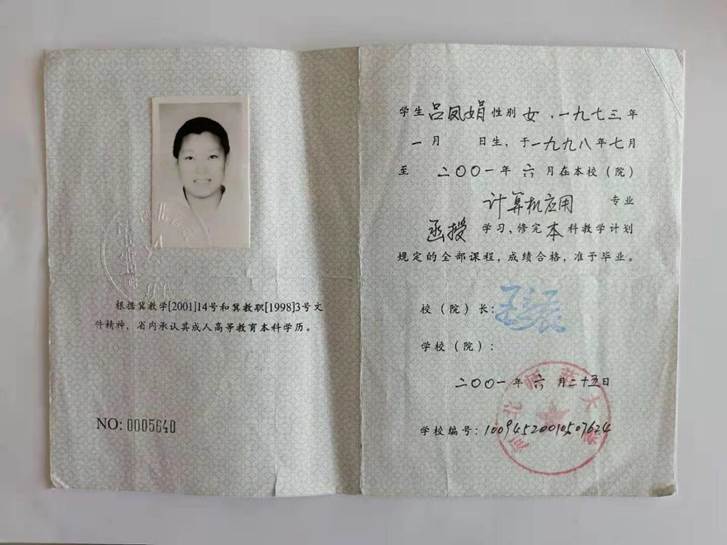 根据冀教学[2001]14号和冀教职[1998]3号文
件精神，省内承认其成人高等教育本科学历。
NO: 0005640
学生 吕凤娟 性别 女 ，一九七三 年
一 月 日生，于 一九九八 年 七 月
至 二〇〇一 年 六 月在本校（院）
计算机应用 专业
函授 学习，修完 本 科教学计划
规定的全部课程，成绩合格，准予毕业。
校（院）长：
学校（院）：
二〇〇一 年 六 月 二十五 日
学校编号：10094520010507624
河北师范大学